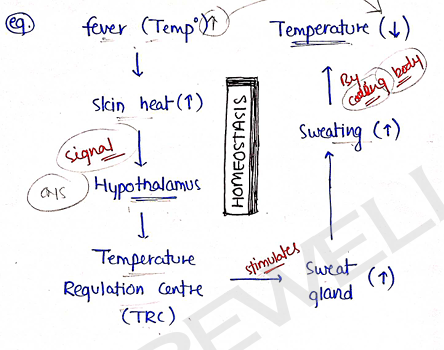 eg.
fever (Tempº)↑
Skin heat (↑)
signal
CNS
Hypothalamus
Temperature
Regulation Centre
(TRC)
stimulates
sweat
gland (↑)
Sweating (↑)
By
cooling body
Temperature (↓)
HOMEOSTASIS